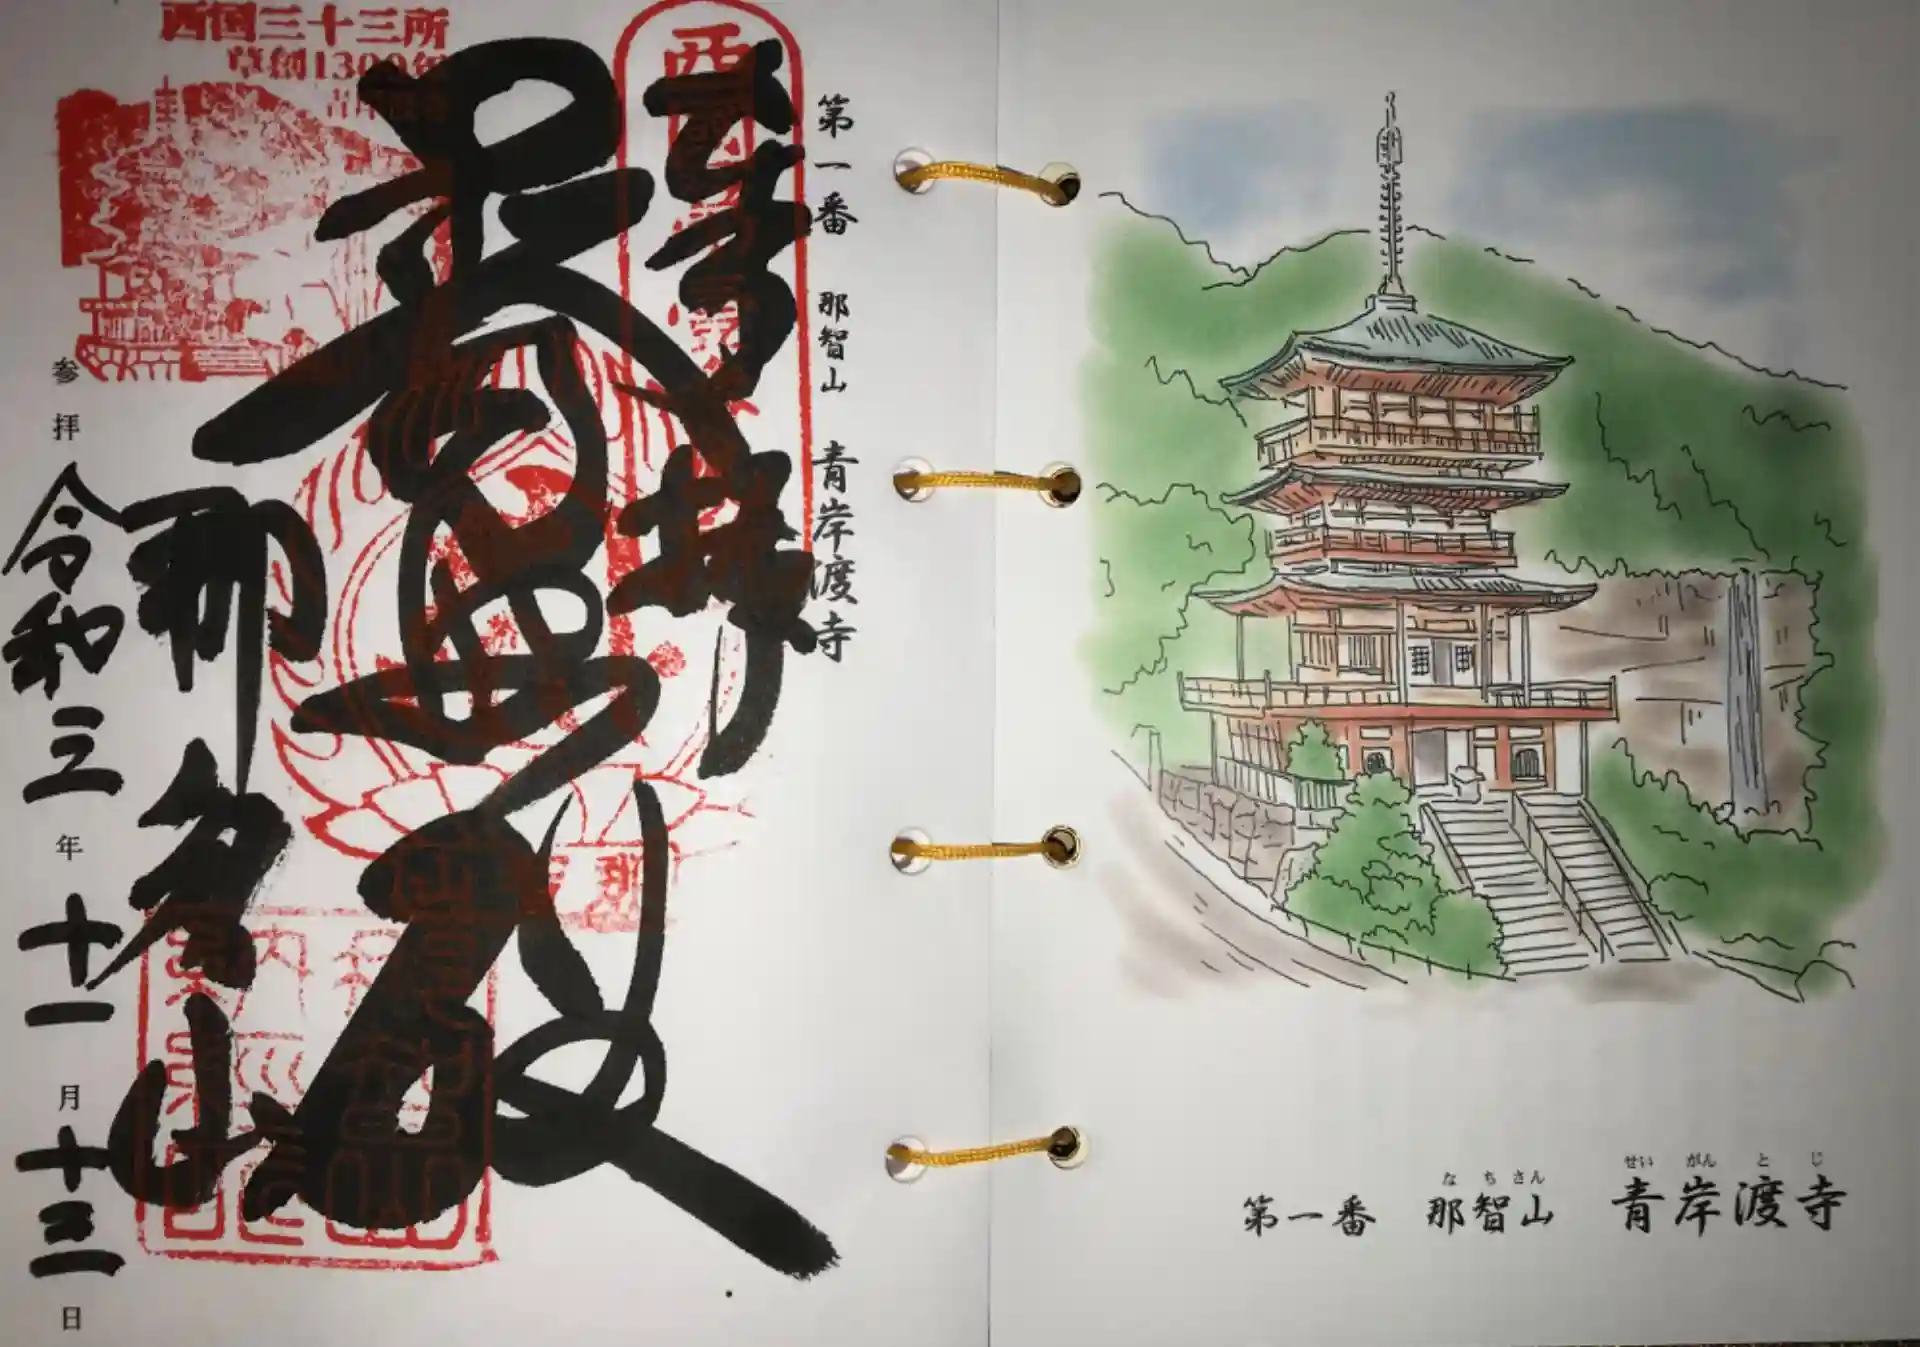 西国三十三所
草創1300年
第一番 那智山 青岸渡寺
奉拝
普照殿
那智山
参拝 令和三年十一月十三日
せいがんとじ
なちさん
第一番 那智山 青岸渡寺